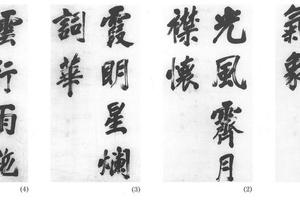 氣象
光風霽月
襟懷
霞明星爛
詞華
雲行雨施
(2)
(3)
(4)